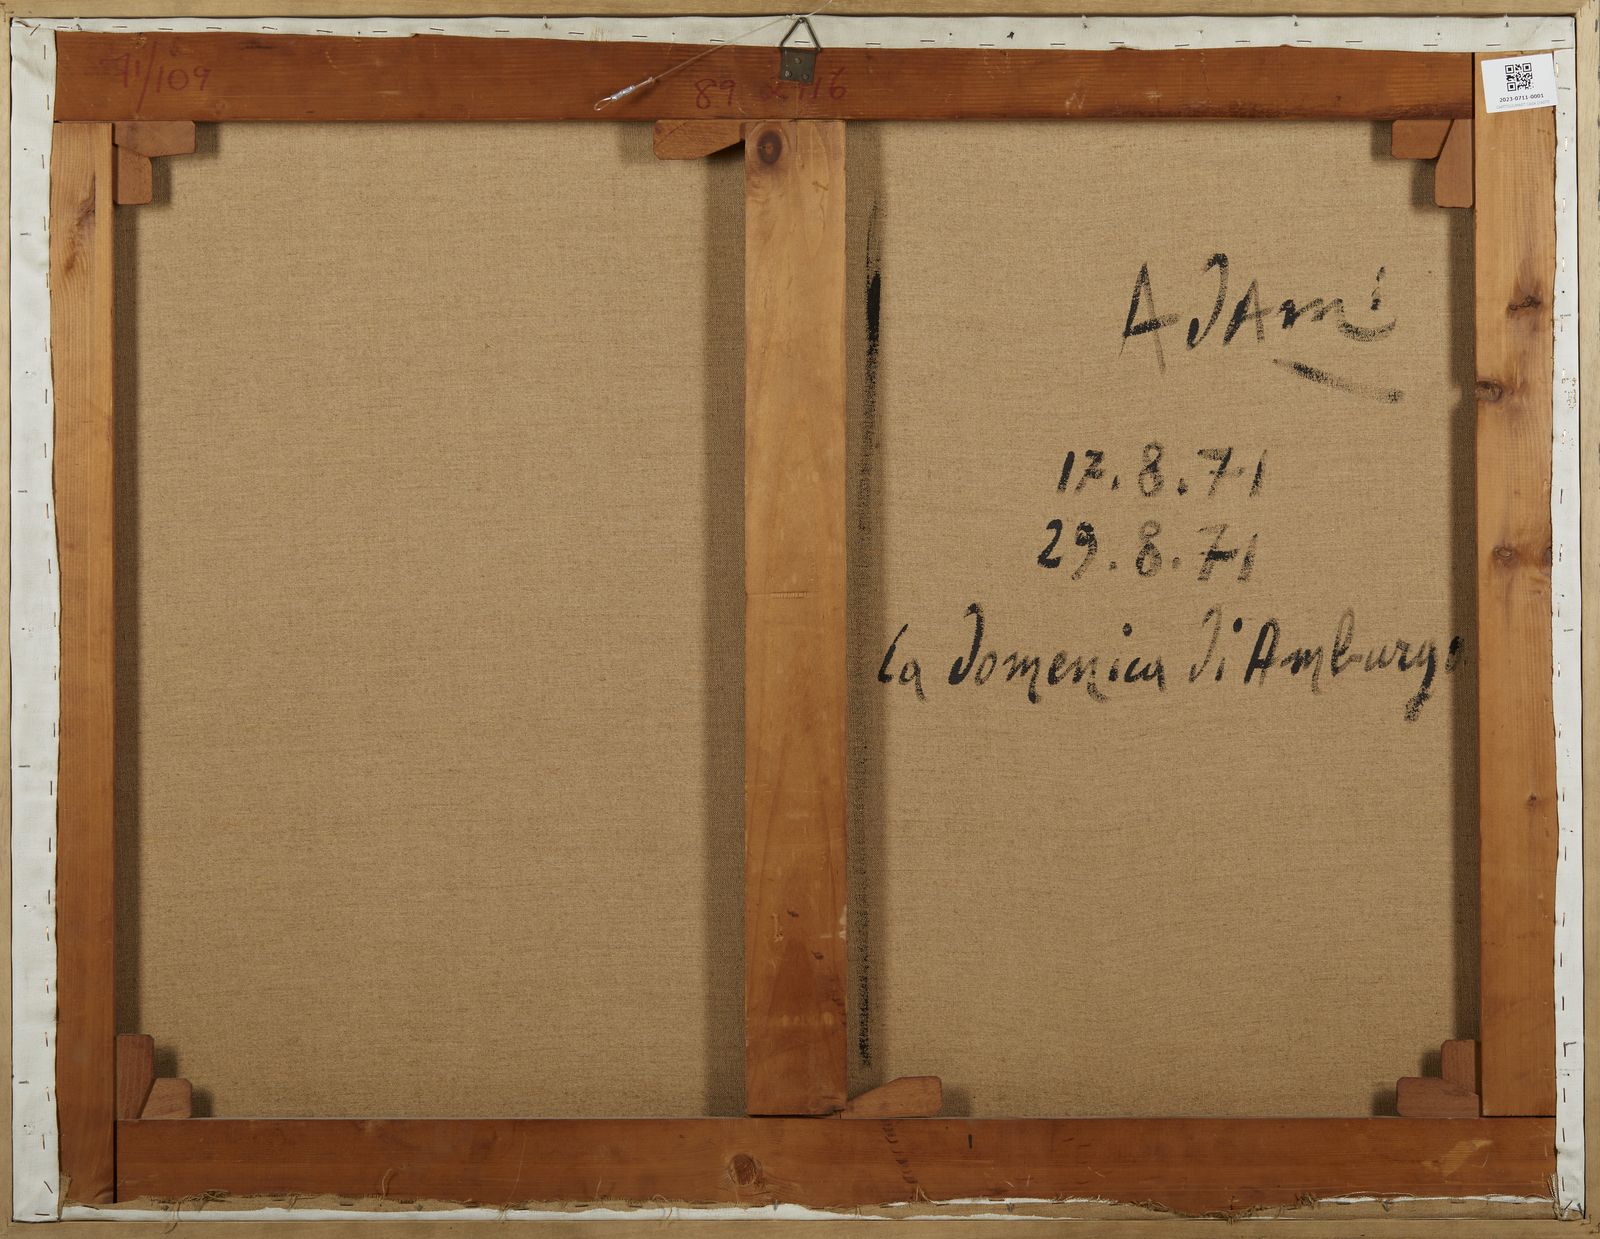 71/109
89 x 116
2023-0711-0001
AdAmi
17.8.71
29.8.71
la domenica di Amburgo